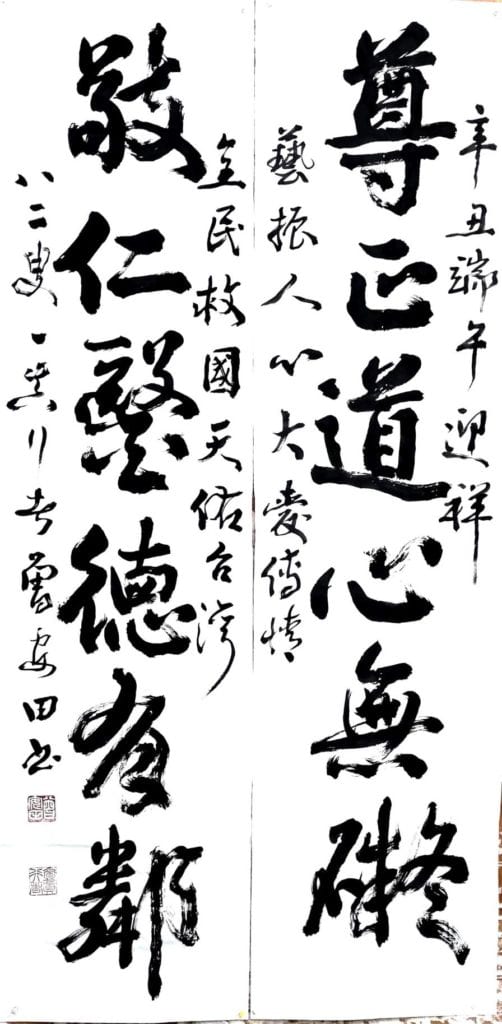 辛丑端午迎祥
尊正道心無礙
藝振人心大愛傳情
全民救國天佑台灣
敬仁醫德有鄰
八二叟一真行者曾安田書